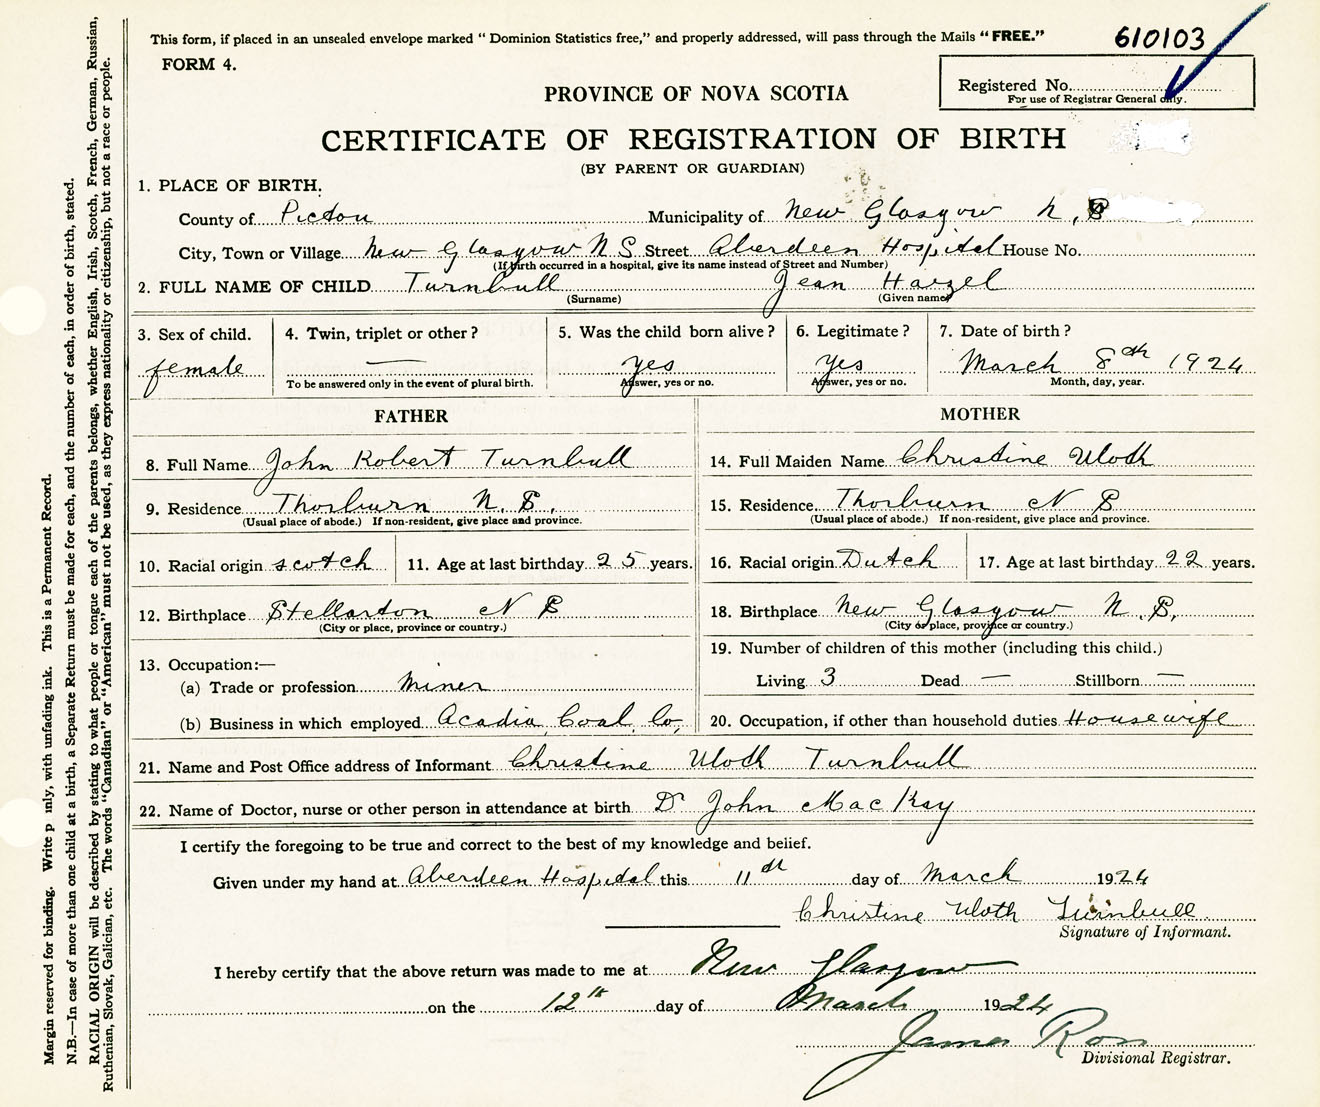 This form, if placed in an unsealed envelope marked "Dominion Statistics free," and properly addressed, will pass through the Mails "FREE."
610103
FORM 4.
Registered No.
For use of Registrar General only.
PROVINCE OF NOVA SCOTIA
CERTIFICATE OF REGISTRATION OF BIRTH
(BY PARENT OR GUARDIAN)
1. PLACE OF BIRTH.
County of Pictou Municipality of New Glasgow N.S
City, Town or Village New Glasgow N S Street Aberdeen Hospital House No.
(If birth occurred in a hospital, give its name instead of Street and Number)
2. FULL NAME OF CHILD Turnbull Jean Hazel
(Surname) (Given name)
3. Sex of child. 4. Twin, triplet or other? 5. Was the child born alive? 6. Legitimate? 7. Date of birth?
female — yes yes March 8th 1924
To be answered only in the event of plural birth. Answer, yes or no. Answer, yes or no. Month, day, year.
FATHER MOTHER
8. Full Name John Robert Turnbull 14. Full Maiden Name Christine Uloth
9. Residence Thorburn N.S. 15. Residence Thorburn N S
(Usual place of abode.) If non-resident, give place and province. (Usual place of abode.) If non-resident, give place and province.
10. Racial origin scotch 11. Age at last birthday 25 years. 16. Racial origin Dutch 17. Age at last birthday 22 years.
12. Birthplace Stellarton N S 18. Birthplace New Glasgow N.S.
(City or place, province or country.) (City or place, province or country.)
13. Occupation:— 19. Number of children of this mother (including this child.)
(a) Trade or profession Miner Living 3 Dead — Stillborn —
(b) Business in which employed Acadia Coal Co, 20. Occupation, if other than household duties Housewife
21. Name and Post Office address of Informant Christine Uloth Turnbull
22. Name of Doctor, nurse or other person in attendance at birth Dr John MacKay
I certify the foregoing to be true and correct to the best of my knowledge and belief.
Given under my hand at Aberdeen Hospital this 11th day of March 1924
Christine Uloth Turnbull
Signature of Informant.
I hereby certify that the above return was made to me at New Glasgow
on the 12th day of March 1924
James Ross
Divisional Registrar.
Margin reserved for binding. Write p nly, with unfading ink. This is a Permanent Record.
N.B.—In case of more than one child at a birth, a Separate Return must be made for each, and the number of each, in order of birth, stated.
RACIAL ORIGIN will be described by stating to what people or tongue each of the parents belongs, whether English, Irish, Scotch, French, German, Russian,
Ruthenian, Slovak, Galician, etc. The words "Canadian" or "American" must not be used, as they express nationality or citizenship, but not a race or people.